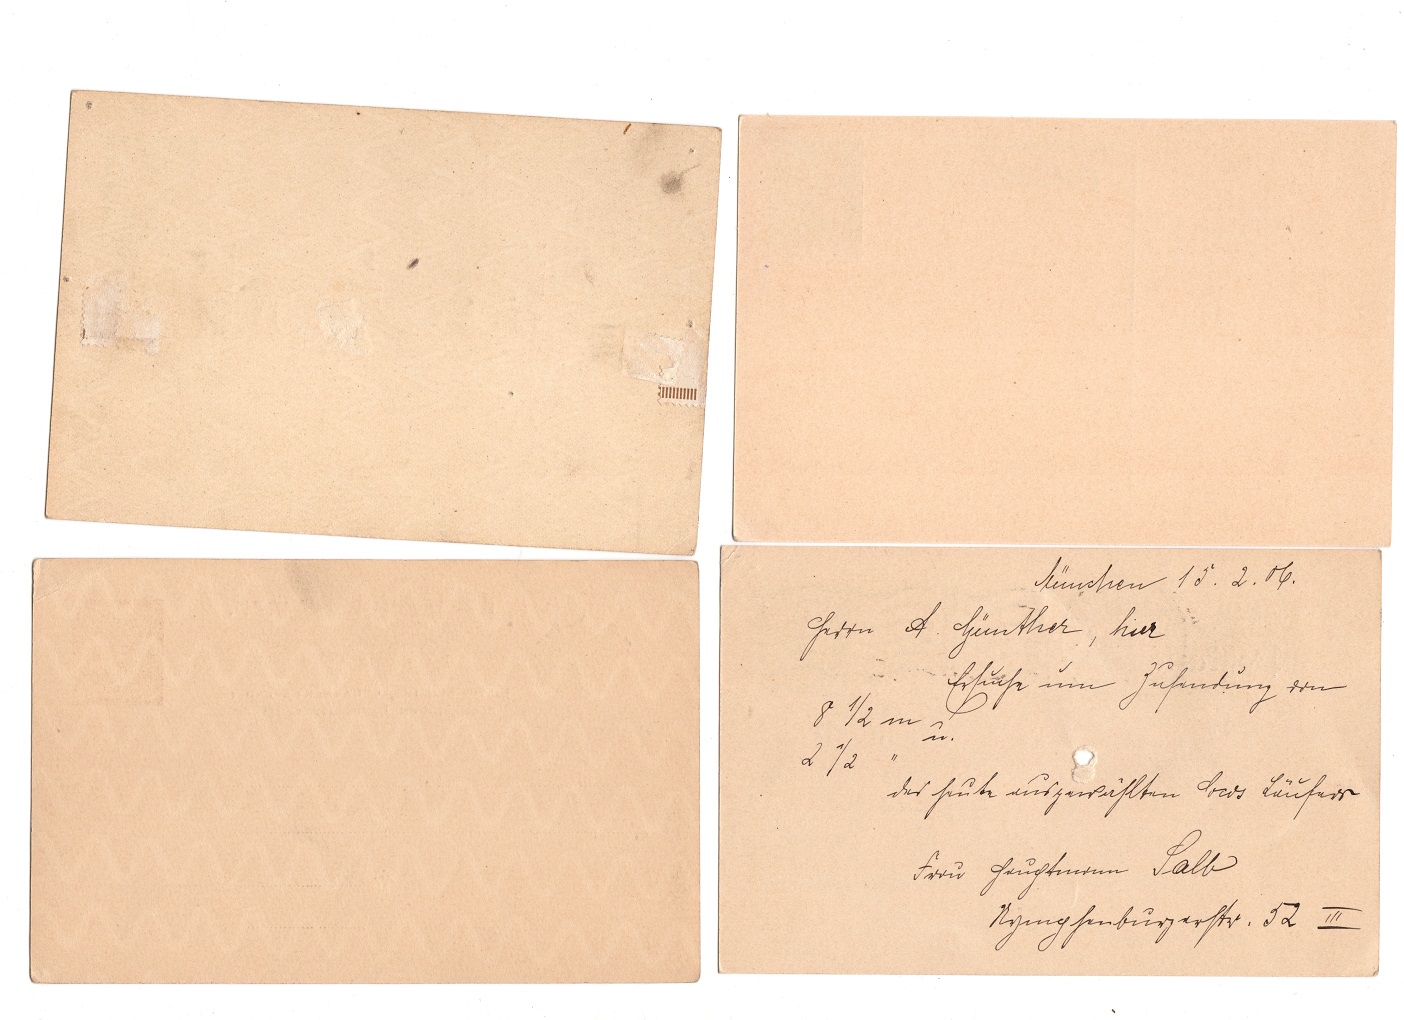 München 15. 2. 06.
Herrn A. Günther, hier
Ersuche um Zusendung von
8 1/2 m u.
2 1/2 "
des heute ausgewählten Läufers
Frau Hauptmann Salb
Nymphenburgerstr. 52 III